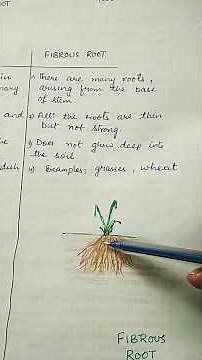 OOT
FIBROUS ROOT
in
nary
there are many roots,
arising from the base
of stem
and
All the roots are thin
but not strong.
Does not grow deep into
the soil
Examples, grasses, wheat
FIBROUS
ROOT